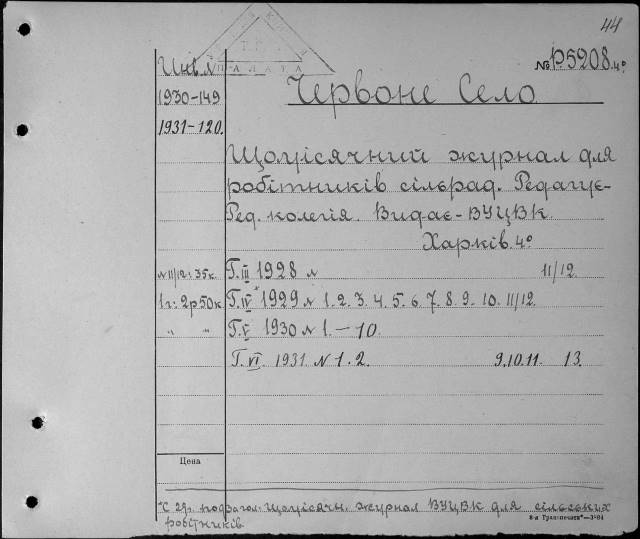 44
№ Р5208.4º
Инв. №
1930-149
1931-120.
Червоне Село
Щомісячний журнал для
робітників сільрад. Редагує-
Ред. колегія. Видає-ВУЦВК.
Харків. 4º
№ 11/12: 35к. Г. III 1928 № 11/12.
1г: 2р50к. Г. IV* 1929 № 1. 2. 3. 4. 5. 6. 7. 8. 9. 10. 11/12.
" " Г. V 1930 № 1.-10.
Г. VI. 1931. № 1. 2. 9. 10. 11. 13.
Цена
*С 29г. подзагол: Щомісячн. журнал ВУЦВК для сільських
робітників
ПАЛАТА